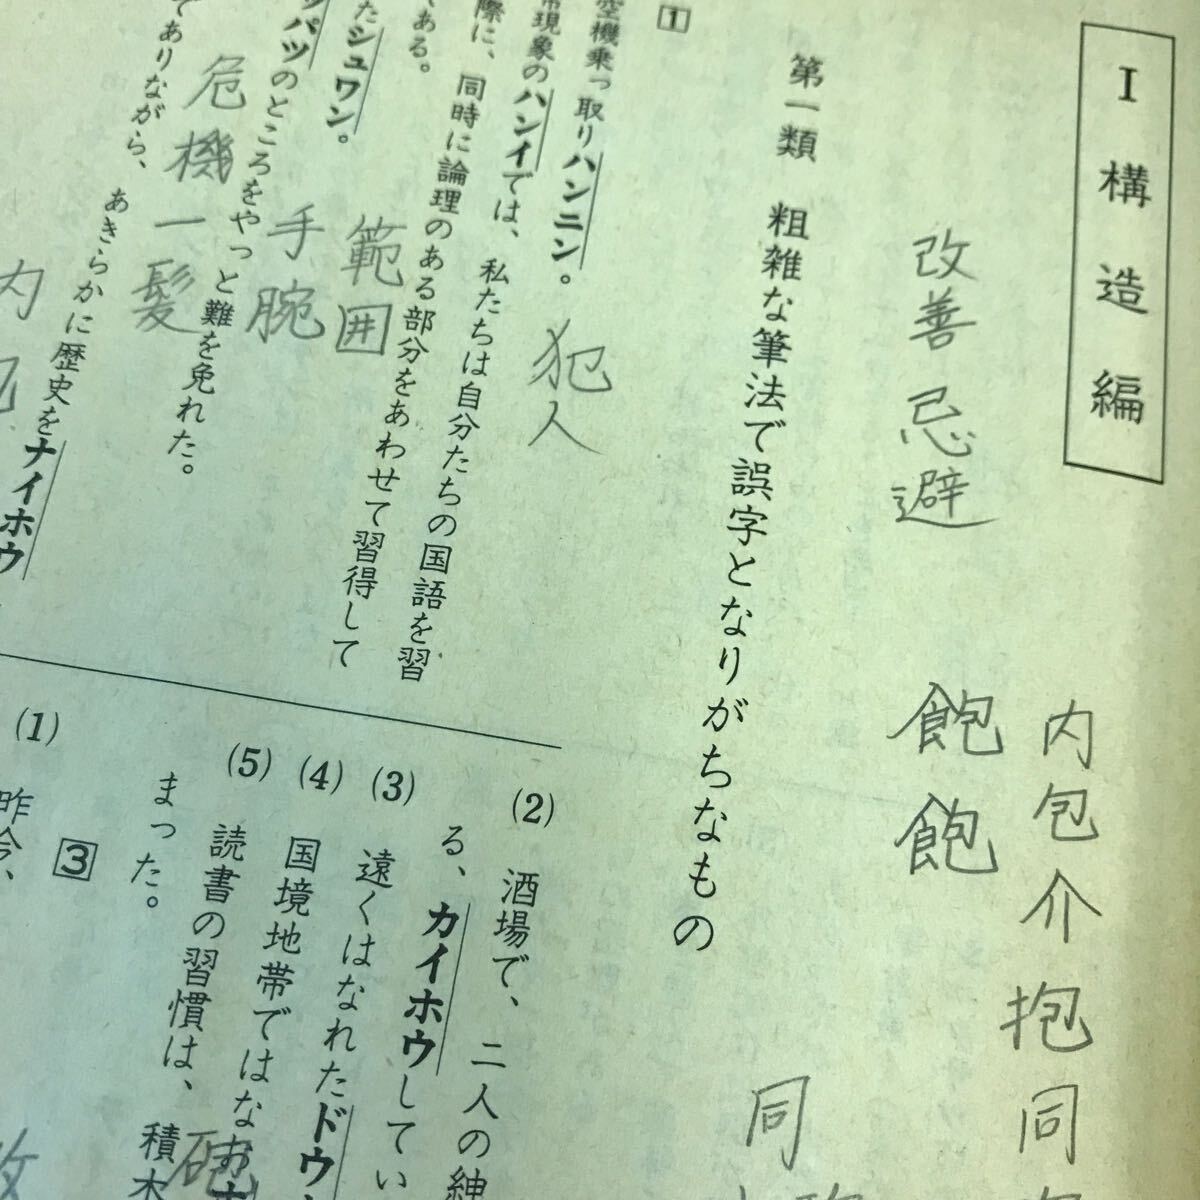 I 構造編
改善忌避
内包介抱同
飽飽
第一類 粗雑な筆法で誤字となりがちなもの
同
1
空機乗っ取りハンニン。
犯人
現象のハンイでは、私たちは自分たちの国語を習
際に、同時に論理のある部分をあわせて習得して
ある。
範囲
たシュワン。
手腕
パツのところをやっと難を免れた。
危機一髪
でありながら、あきらかに歴史をナイホウ
内
(2) 酒場で、二人の紳
る、カイホウしてい
(3) 遠くはなれたドウ
(4) 国境地帯ではなお
砲
(5) 読書の習慣は、積木
まった。
3
(1) 昨今、